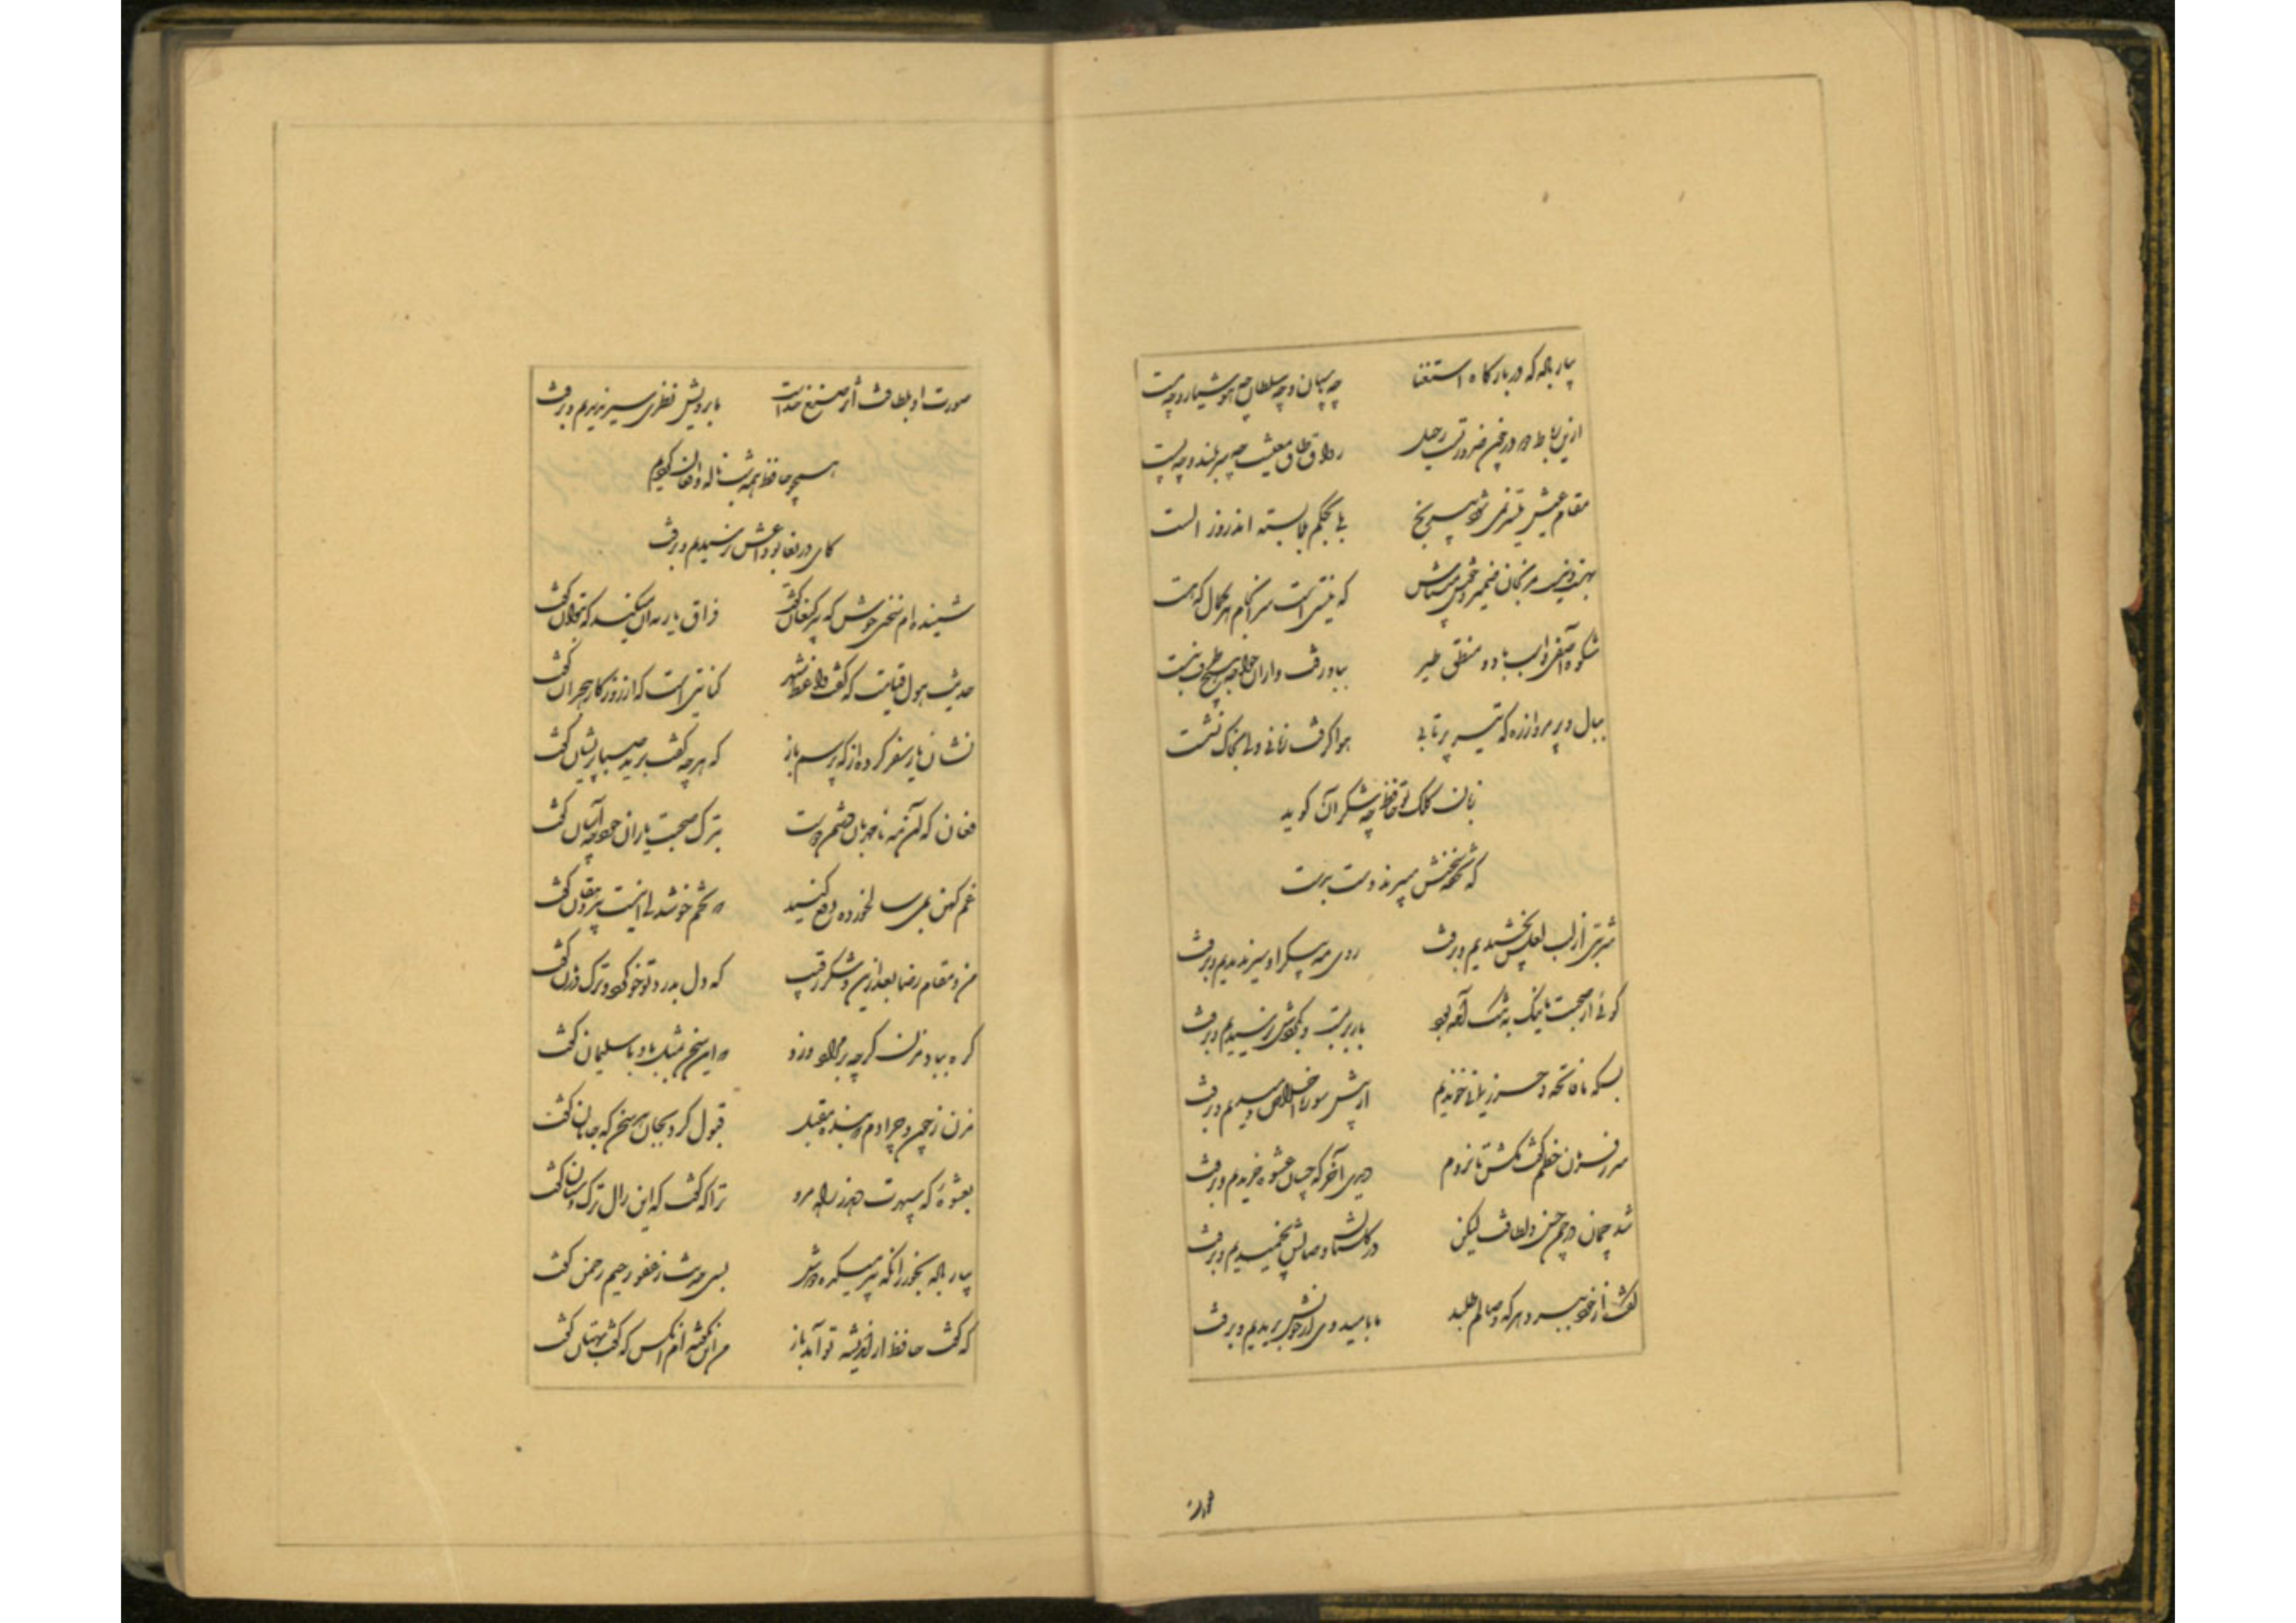 بیار باده که در بارگاه استغنا چه پاسبان و چه سلطان چه هوشیار و چه مست
ازین رباط دو در چون ضرورتست رحیل رواق طاق معیشت چه سربلند و چه پست
مقام عیش میسر نمی‌شود بی رنج بلی بحکم بلا بسته اند روز الست
بهست و نیست مرنجان ضمیر و خوش میباش که نیستی است سرانجام هر کمال که هست
شکوه آصفی و اسب باد و منطق طیر بباد رفت و از آن خواجه هیچ طرف نبست
ببال و پر مرو از ره که تیر پرتابی هوا گرفت زمانی ولی بخاک نشست
زبان کلک تو حافظ چه شکر آن گوید
که تحفه سخنش میبرند دست بدست
شربتی از لب لعلش نچشیدیم و برفت روی مه پیکر او سیر ندیدیم و برفت
گوئی از صحبت ما نیک به تنگ آمده بود بار بربست و بگردش نرسیدیم و برفت
بسکه ما فاتحه و حرز یمانی خواندیم از پیش سوره اخلاص دمیدیم و برفت
سر ز فرمان خطم گفت مکش تا نروم دیدی آخر که چسان عشوه خریدیم و برفت
شد چمان در چمن حسن و لطافت لیکن در گلستان وصالش نچمیدیم و برفت
گفت از خود ببرد هر که وصالم طلبد ما بامید وی از خویش بریدیم و برفت
صورت او بلطافت اثر صنع خداست ما برویش نظری سیر ندیدیم و برفت
همچو حافظ همه شب ناله و افغان کردیم
کای دریغا بوداعش نرسیدیم و برفت
شنیده ام سخنی خوش که پیر کنعان گفت فراق یار نه آن میکند که بتوان گفت
حدیث هول قیامت که گفت واعظ شهر کنایتی است که از روزگار هجران گفت
نشان یار سفر کرده از که پرسم باز که هر چه گفت برید صبا پریشان گفت
فغان که آن مه نامهربان دشمن دوست بترک صحبت یاران خود چه آسان گفت
غم کهن بمی سالخورده دفع کنید که تخم خوشدلی اینست پیر دهقان گفت
من و مقام رضا بعد ازین و شکر رقیب که دل بدرد تو خو کرد و ترک درمان گفت
گره بباد مزن گرچه بر مراد وزد که این سخن بمثل باد با سلیمان گفت
مزن ز چون و چرا دم که بنده مقبل قبول کرد بجان هر سخن که جانان گفت
بعشوه که سپهرت دهد ز راه مرو ترا که گفت که این زال ترک دستان گفت
بیار باده بخور زانکه پیر میکده دوش بسی حدیث ز غفور رحیم رحمن گفت
که گفت حافظ از اندیشه تو آمد باز من این نگفته ام آنکس که گفت بهتان گفت